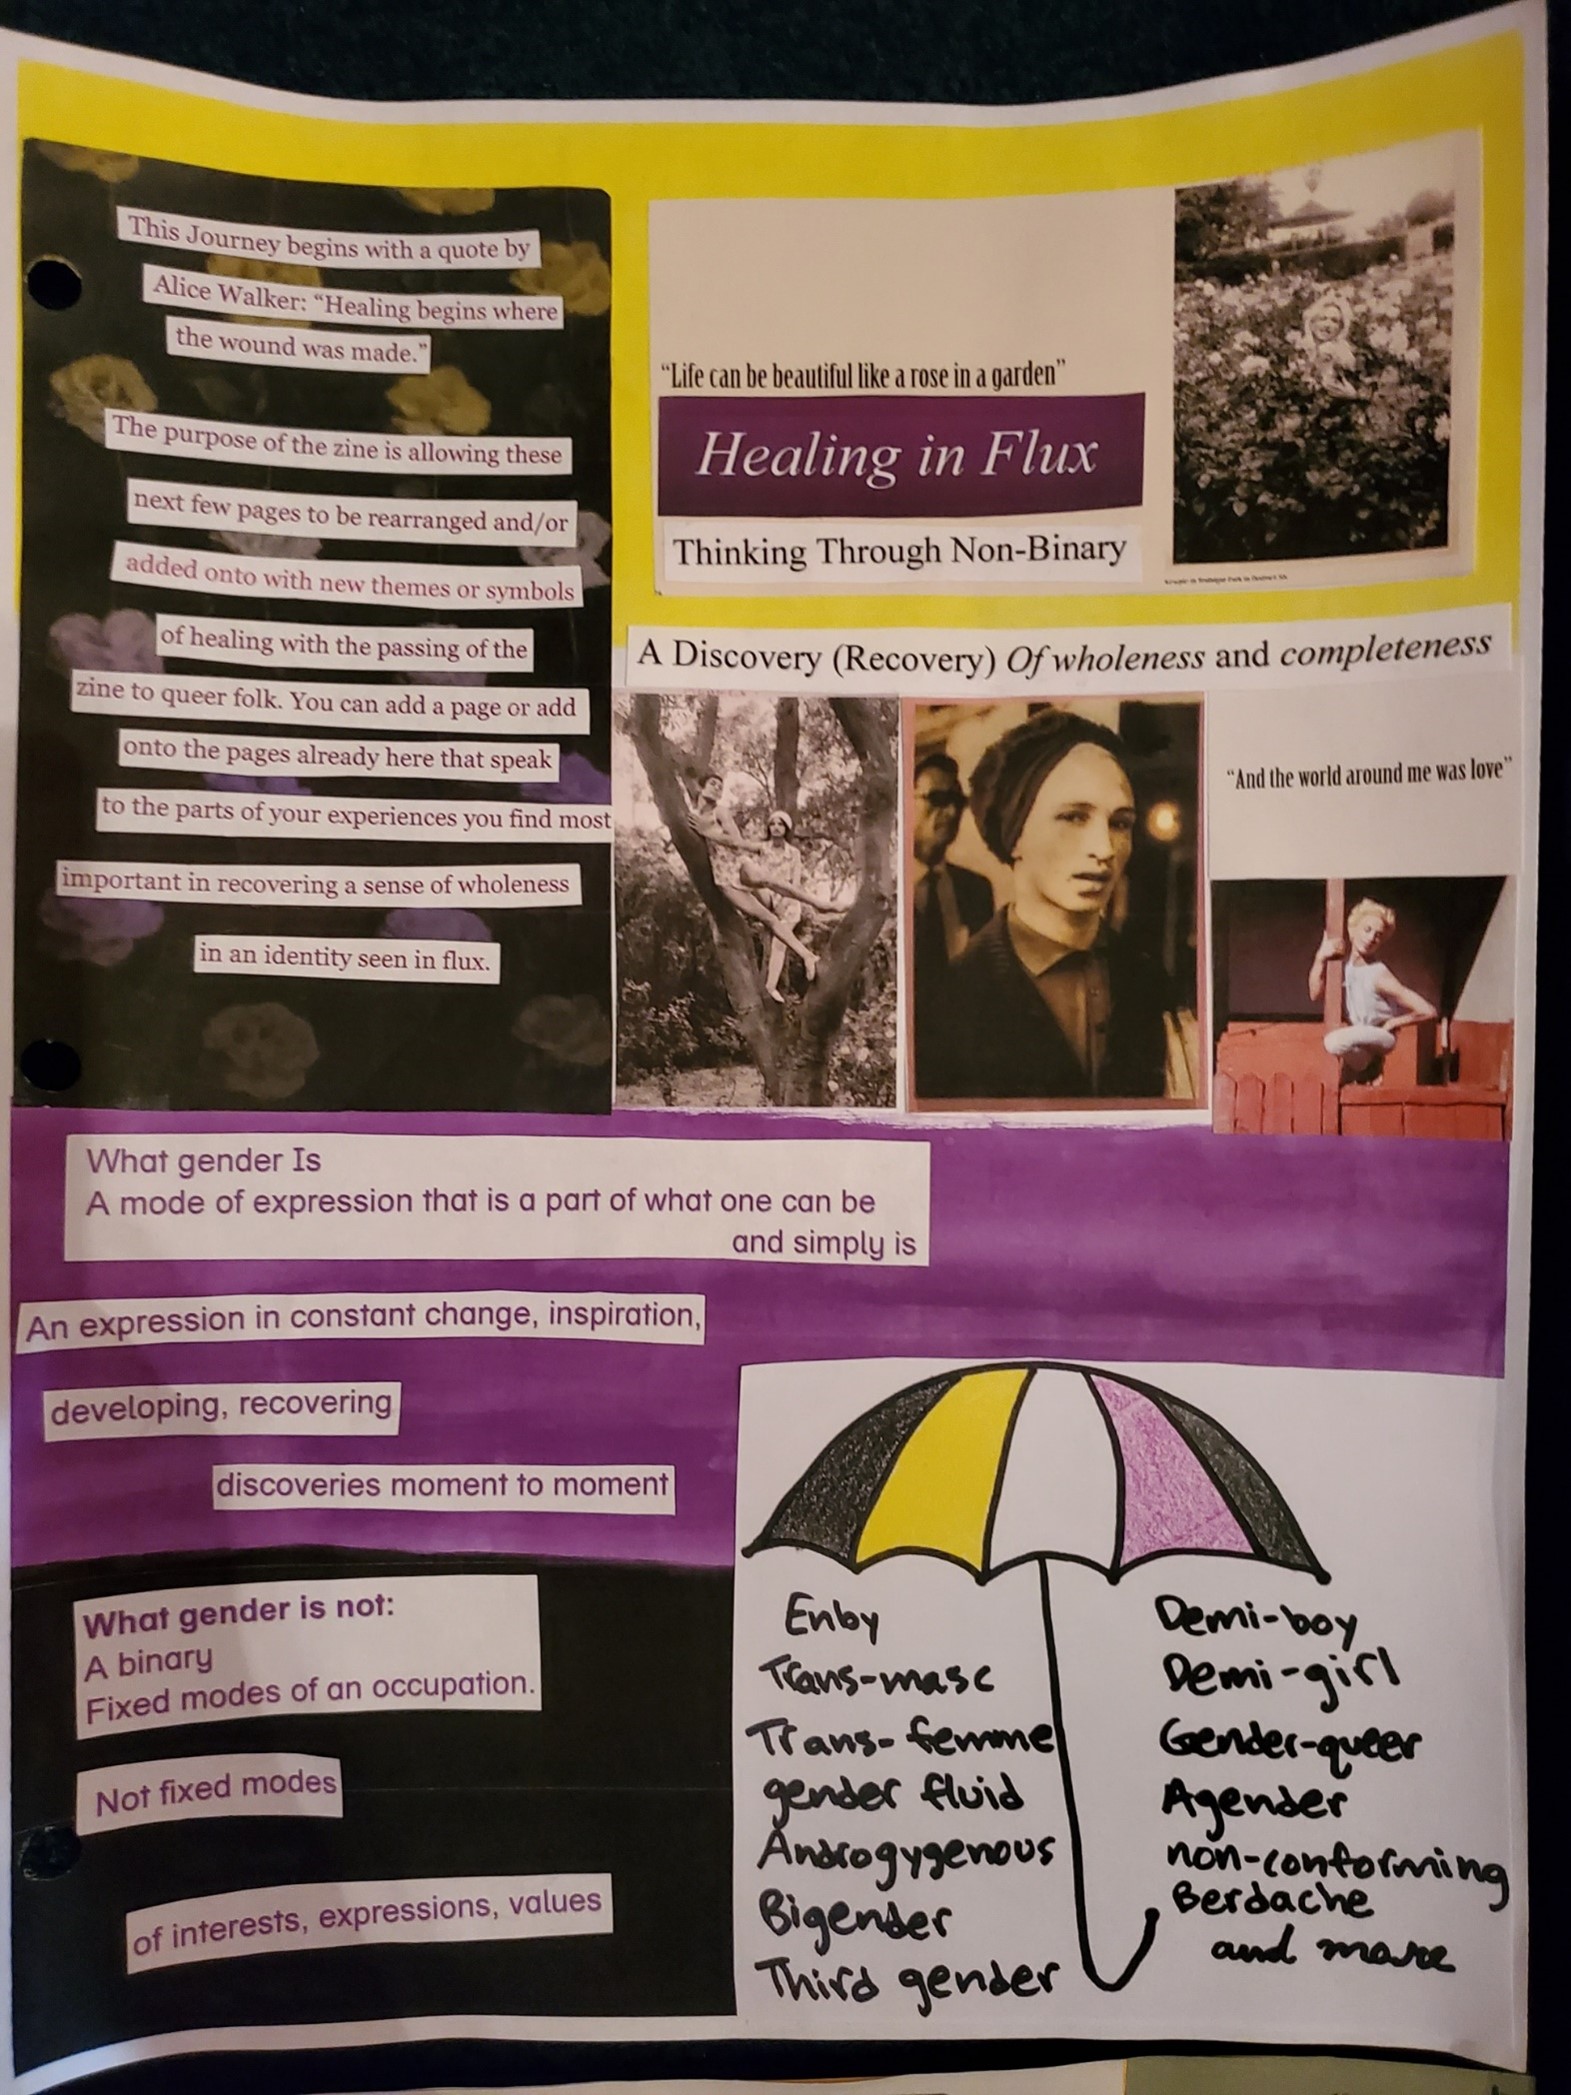 This Journey begins with a quote by
Alice Walker: “Healing begins where
the wound was made.”
The purpose of the zine is allowing these
next few pages to be rearranged and/or
added onto with new themes or symbols
of healing with the passing of the
zine to queer folk. You can add a page or add
onto the pages already here that speak
to the parts of your experiences you find most
important in recovering a sense of wholeness
in an identity seen in flux.
“Life can be beautiful like a rose in a garden”
Healing in Flux
Thinking Through Non-Binary
A Discovery (Recovery) Of wholeness and completeness
“And the world around me was love”
What gender Is
A mode of expression that is a part of what one can be
and simply is
An expression in constant change, inspiration,
developing, recovering
discoveries moment to moment
What gender is not:
A binary
Fixed modes of an occupation.
Not fixed modes
of interests, expressions, values
Enby
Trans-masc
Trans-femme
gender fluid
Androgygenous
Bigender
Third gender
Demi-boy
Demi-girl
Gender-queer
Agender
non-conforming
Berdache
and more